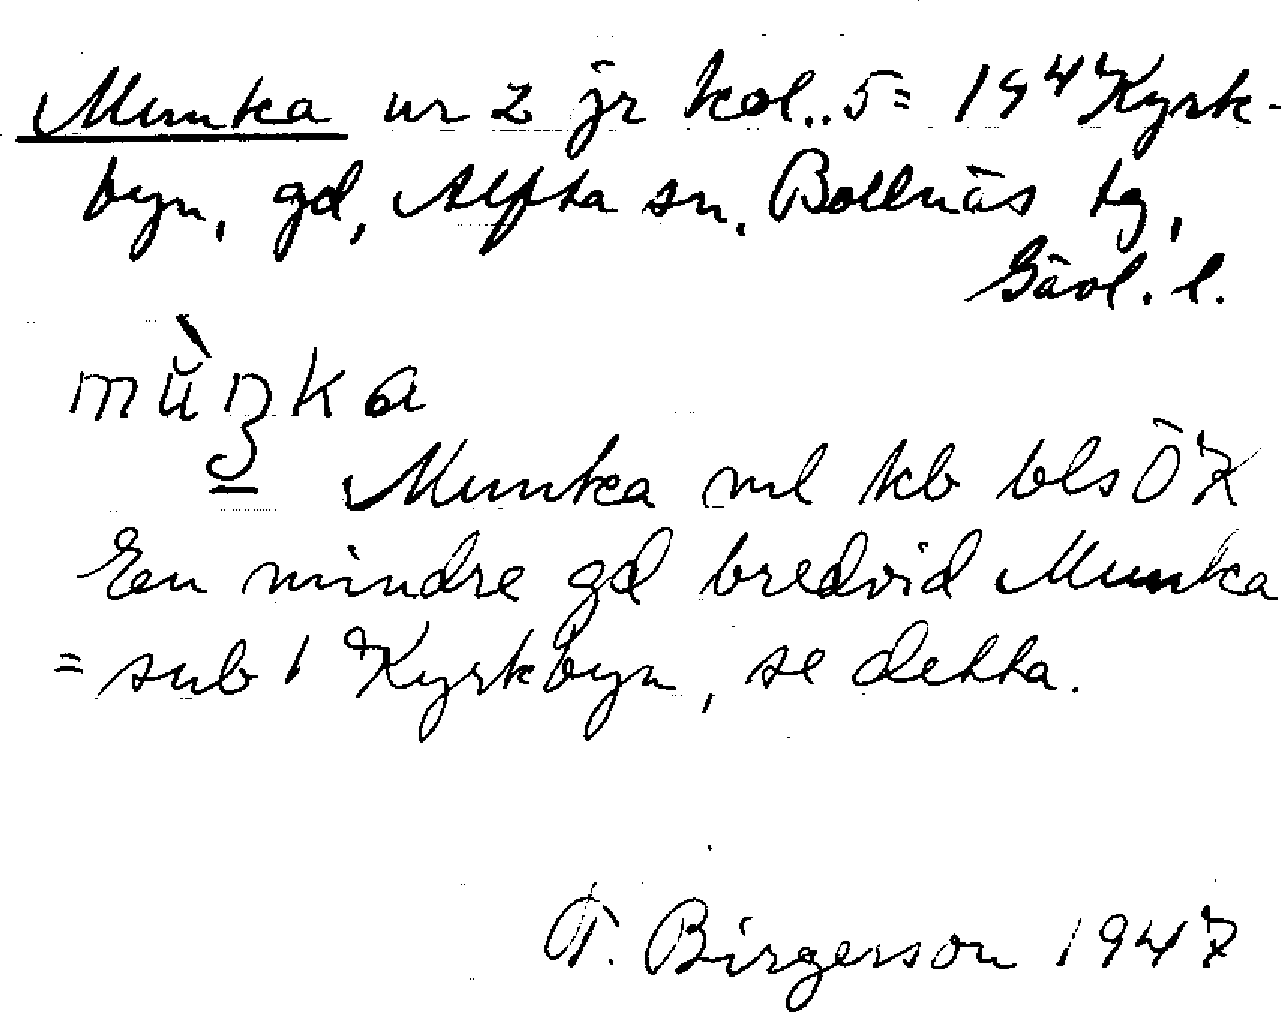 Munka nr 2 jr kol..5= 19⁴ Kyrk-
byn, gd, Alfta sn. Bollnäs tg,
Gävl. l.
mùŋka
Munka ml kb bls ÖK
En mindre gd bredvid Munka
= sub 1 Kyrkbyn, se detta.
T. Birgerson 1947